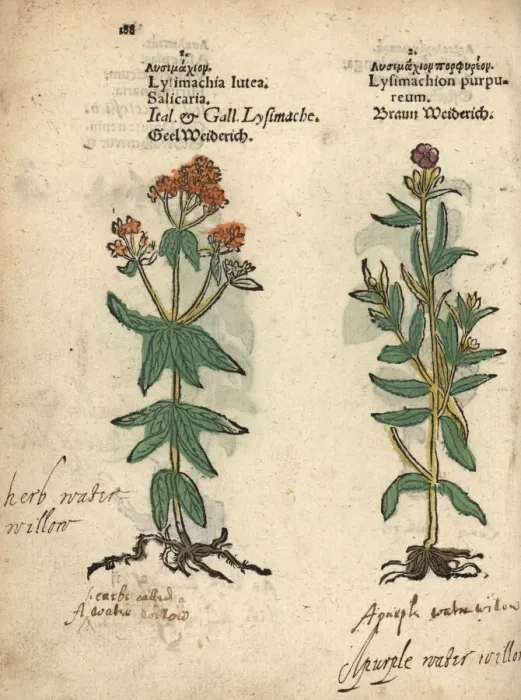 188
1.
Λυσιμάχιον.
Lysimachia lutea.
Salicaria.
Ital. & Gall. Lysimache.
Geel Weiderich.
2.
Λυσιμάχιον πορφυρέον.
Lysimachion purpu-
reum.
Braun Weiderich.
herb water
willow
called a
water willow
A purple water willow
A purple water willow